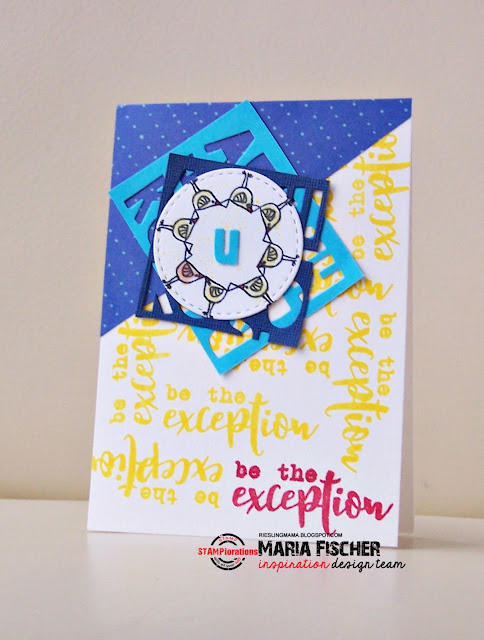 u
exception
be the
be the
exception
be the
exception
be the
exception
be the
exception
be the
exception
be the
exception
RIESLINGMAMA.BLOGSPOT.COM
STAMPlorations
MARIA FISCHER
inspiration design team